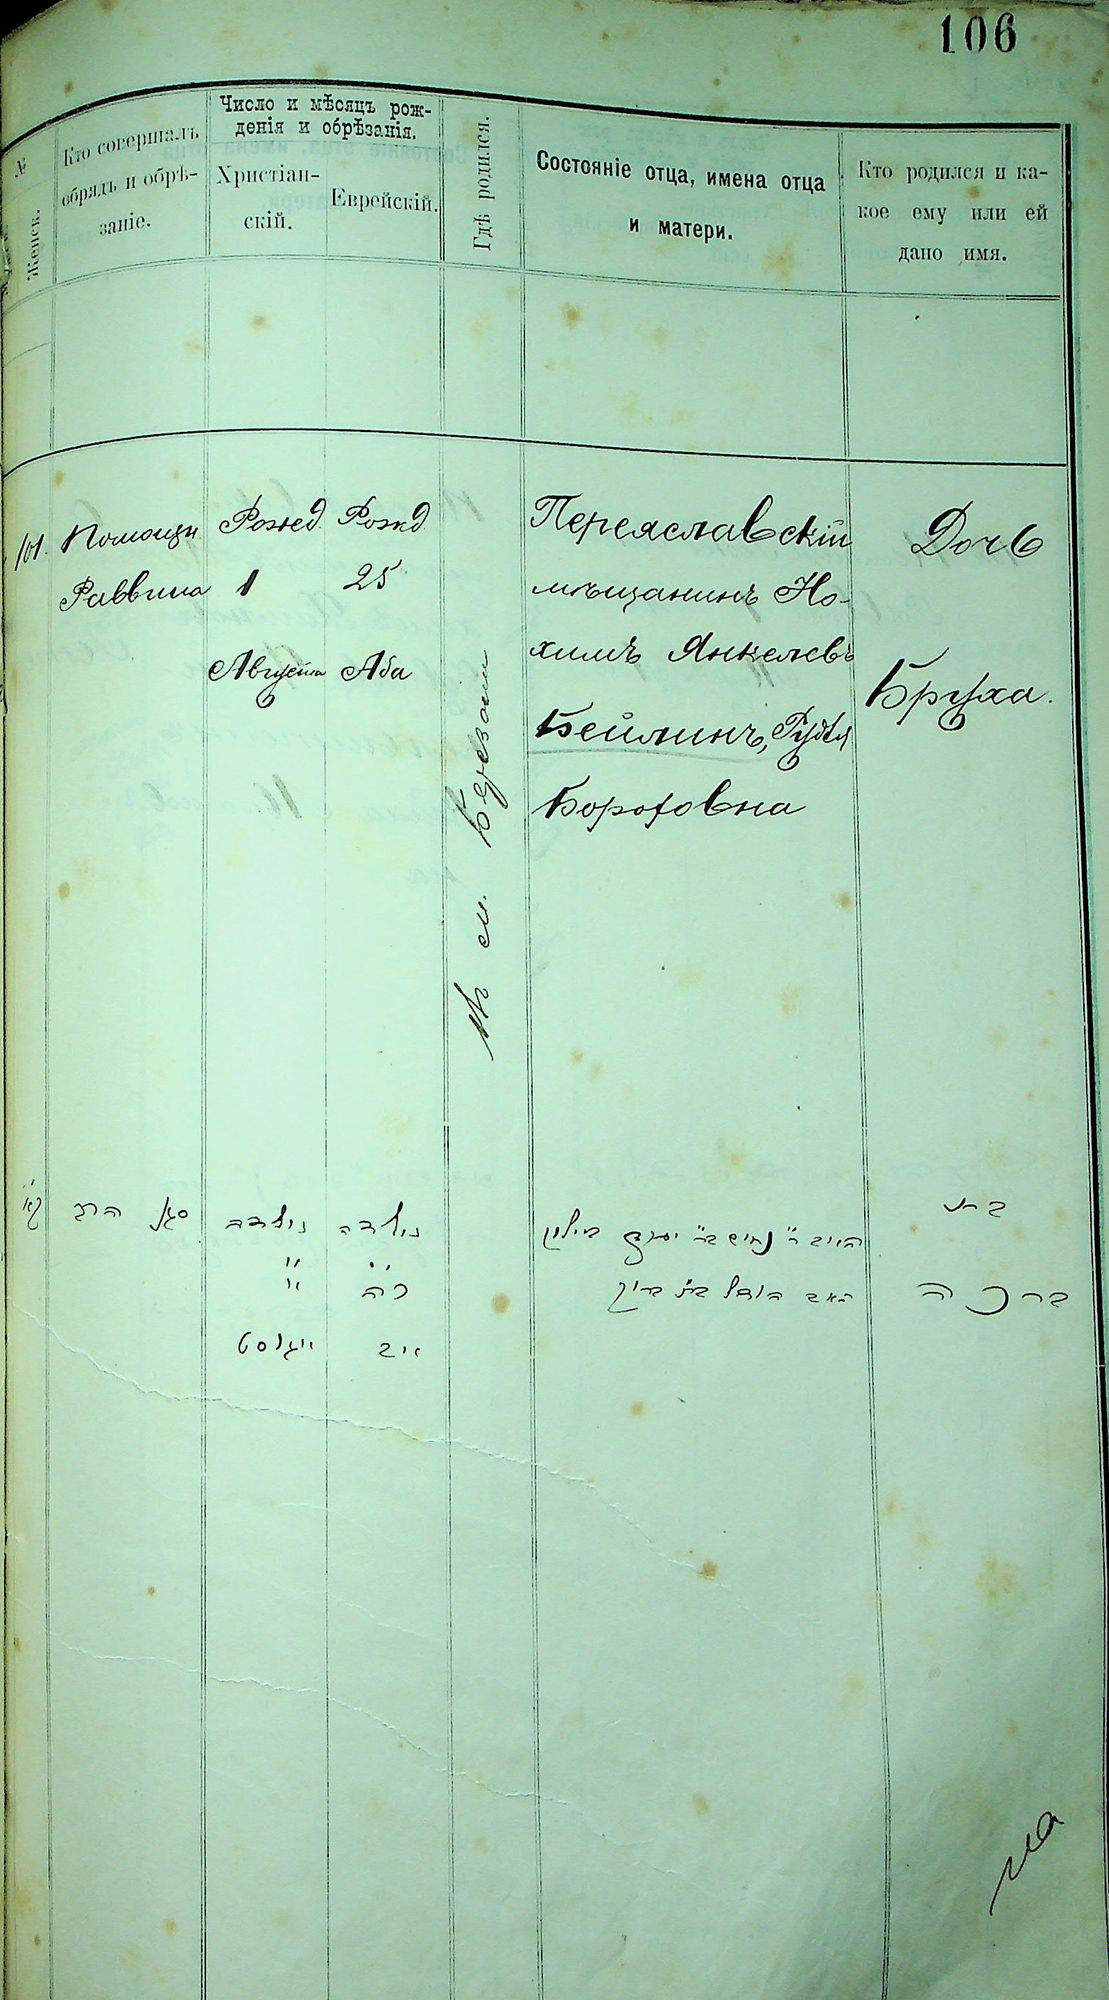 106
№
Женск.
Кто совершалъ
обрядъ и обрѣ-
заніе.
Число и мѣсяцъ рож-
денія и обрѣзанія.
Христіан-
скій.
Еврейскій.
Гдѣ родился.
Состояніе отца, имена отца
и матери.
Кто родился и ка-
кое ему или ей
дано имя.
101.
Помощн
Раввина
Рожед
1
Августа
Рожд
25
Аба
въ м. Березани
Переяславскій
мѣщанинъ Но-
химъ Янкелевъ
Бейлинъ,
Бороховна
Дочь
Бруха.
קא
סגן הרב
נולדה
"
אויגוסט
נולדה
כה
אב
יעקב בילין
ברוך
בת
ברכה